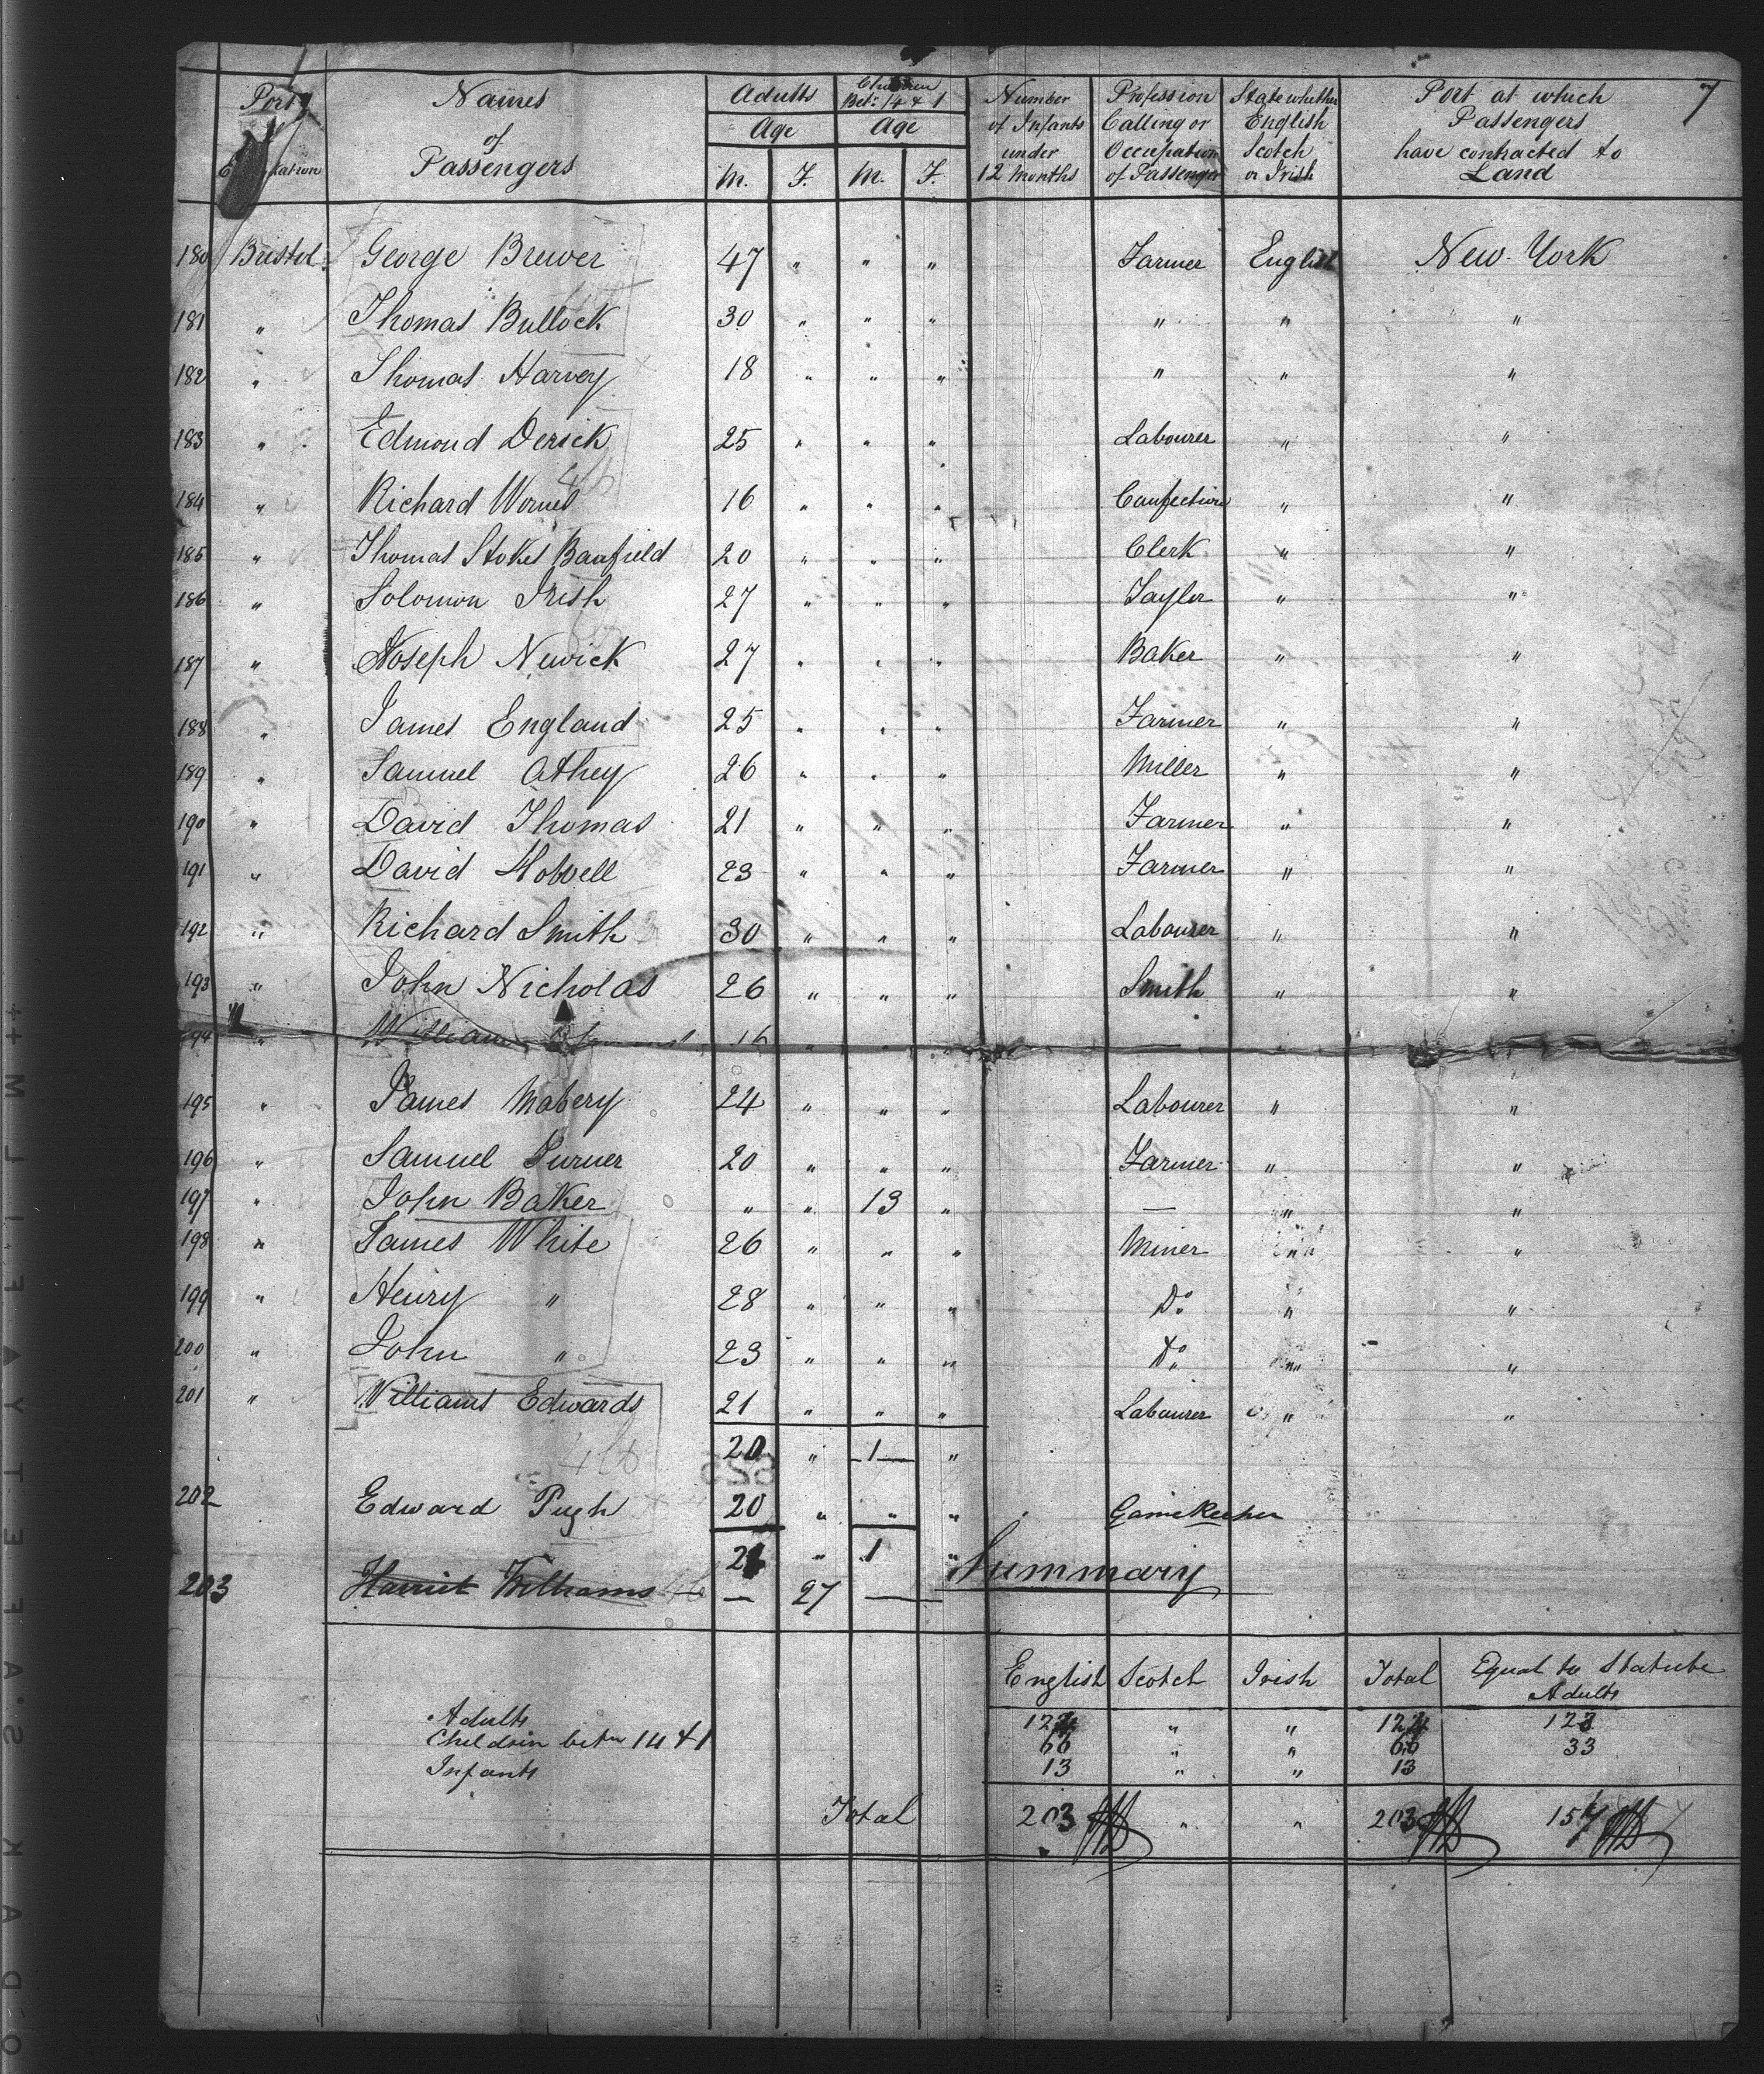 7
Port of Embarkation | Names of Passengers | Adults Age M. F. | Children Betn 14 & 1 Age M. F. | Number of Infants under 12 Months | Profession Calling or Occupation of Passenger | State whether English Scotch or Irish | Port at which Passengers have contracted to Land
180 Bristol George Brewer 47 " " " Farmer English New York
181 " Thomas Bullock 30 " " " " " "
182 " Thomas Harvey 18 " " " " " "
183 " Edmond Derick 25 " " " Labourer " "
184 " Richard 16 " " " Confectioner " "
185 " Thomas Stokes Banfield 20 " " " Clerk " "
186 " Solomon Irish 27 " " " Taylor " "
187 " Joseph Newick 27 " " " Baker " "
188 " James England 25 " " " Farmer " "
189 " Samuel Athey 26 " " " Miller " "
190 " David Thomas 21 " " " Farmer " "
191 " David 23 " " " Farmer " "
192 " Richard Smith 30 " " " Labourer " "
193 " John Nicholas 26 " " " Smith " "
194 " William 16 " " "
195 " James Mabery 24 " " " Labourer " "
196 " Samuel Turner 20 " " " Farmer " "
197 " John Baker " " 13 " — " "
198 " James White 26 " " " Miner " "
199 " Henry " 28 " " " Do " "
200 " John " 23 " " " Do " "
201 " Williams Edwards 21 " " " Labourer " "
20 " 1 "
202 Edward Pugh 20 " " " Gamekeeper
21 " 1 "
203 Harriet Williams — 27 —
Summary
English Scotch Irish Total Equal to Statute Adults
Adults 124 " " 124 123
Children betn 14 & 1 66 " " 66 33
Infants 13 " " 13
Total 203 " " 203 157